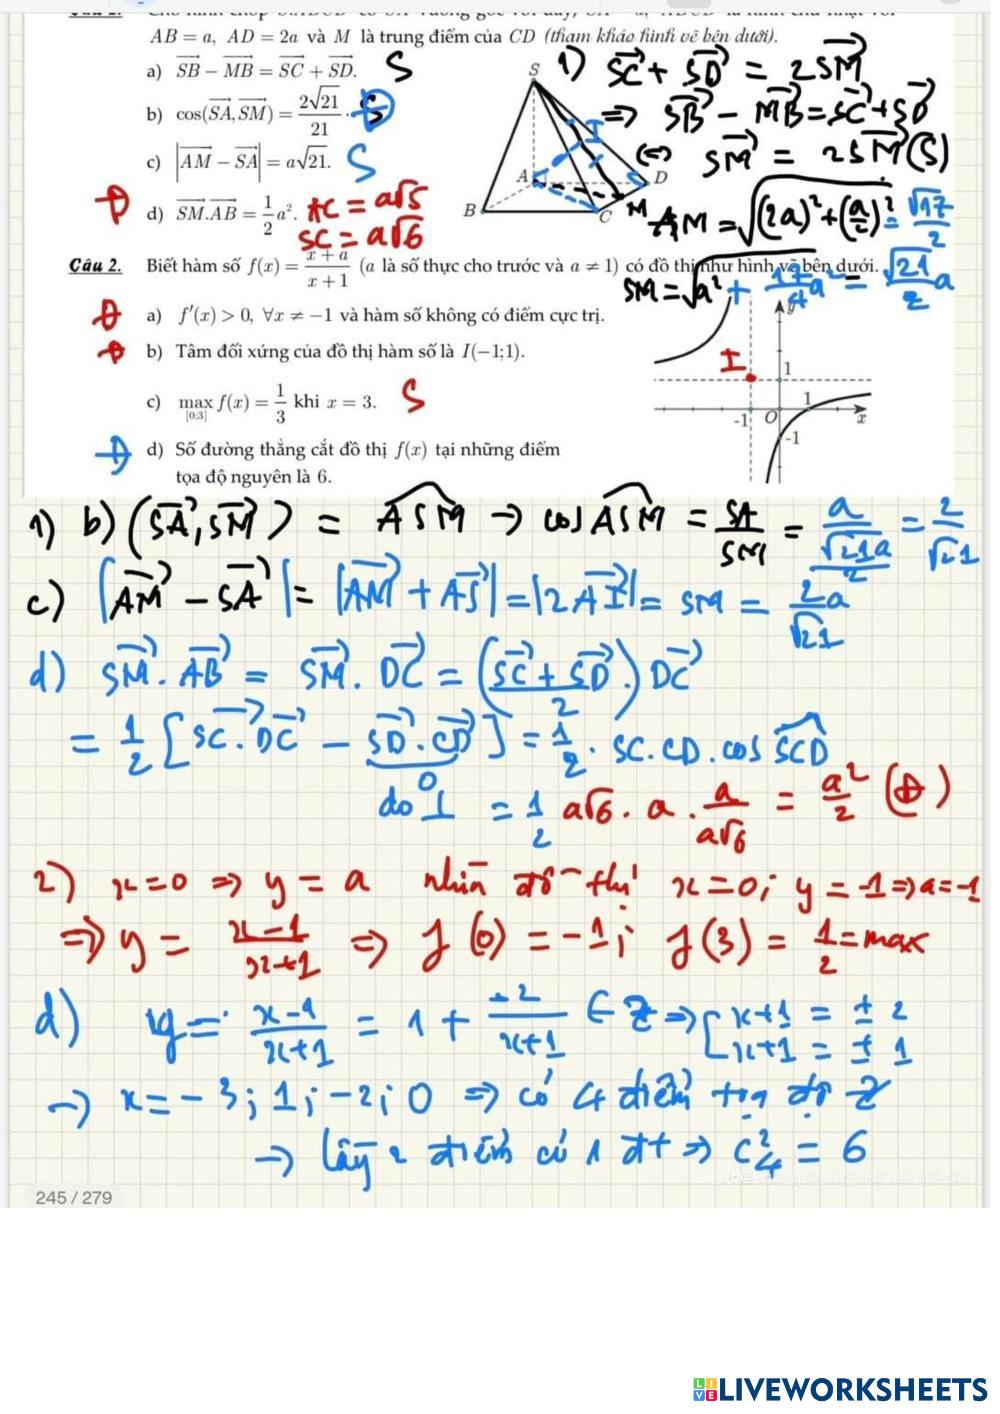 AB = a, AD = 2a và M là trung điểm của CD (tham khảo hình vẽ bên dưới).
a) SB − MB = SC + SD. S
b) cos(SA, SM) = 2√21/21. Đ
c) |AM − SA| = a√21. S
Đ d) SM.AB = 1/2 a². AC = a√5
SC = a√6
S
A
B
C
D
M
I
1) SC + SD = 2SM
⇒ SB − MB = SC + SD
⇔ SM = 2SM (S)
AM = √((2a)² + (a/2)²) = √17/2
SM = √(a² + 17/4 a²) = √21/2 a
Câu 2. Biết hàm số f(x) = (x + a)/(x + 1) (a là số thực cho trước và a ≠ 1) có đồ thị như hình vẽ bên dưới.
Đ a) f'(x) > 0, ∀x ≠ −1 và hàm số không có điểm cực trị.
Đ b) Tâm đối xứng của đồ thị hàm số là I(−1;1).
c) max[0;3] f(x) = 1/3 khi x = 3. S
Đ d) Số đường thẳng cắt đồ thị f(x) tại những điểm
tọa độ nguyên là 6.
y
I
1
-1
O
1
x
-1
1) b) (SA, SM) = ASM → cos ASM = SA/SM = a/(√21a/2) = 2/√21
c) |AM − SA| = |AM + AS| = |2AI| = SM = 2a/√21
d) SM. AB = SM. DC = (SC + SD)/2 . DC
= 1/2 [SC. DC − SD. CD] = 1/2 . SC. CD. cos SCD
0
do ⊥ = 1/2 a√6. a. a/a√6 = a²/2 (Đ)
2) x=0 ⇒ y = a nhìn đồ thị x=0; y = -1 ⇒ a = -1
⇒ y = (x-1)/(x+1) ⇒ f(0) = -1; f(3) = 1/2 = max
d) y = (x-1)/(x+1) = 1 + -2/(x+1) ∈ Z ⇒ [x+1 = ± 2
x+1 = ± 1
→ x = -3; 1; -2; 0 ⇒ có 4 điểm tọa độ Z
→ lấy 2 điểm có 1 đt ⇒ C²₄ = 6
245 / 279
LIVEWORKSHEETS